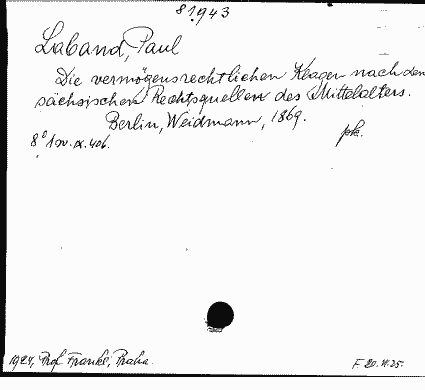 81943
Laband, Paul
Die vermögensrechtlichen Klagen nach den
sächsischen Rechtsquellen des Mittelalters.
Berlin, Weidmann, 1869.
8° 406.
1924, Prof. Praha
F 20.